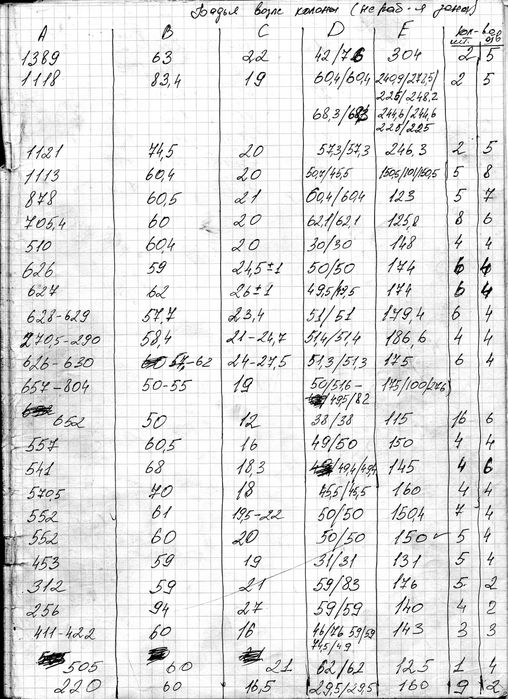 возле колоны (не раб-я зона)
A B C D E кол-во
шт. отв
1389 63 22 42/76 304 2 5
1118 83,4 19 60,4/60,4 240,9/278,5/ 2 5
225/248,2
68,3/ 244,6/244,6
225/225
1121 74,5 20 57,3/57,3 246,3 2 5
1113 60,4 20 50,7/45,5 5 8
878 60,5 21 60,4/60,4 123 5 7
705,4 60 20 62,1/62,1 123,8 8 6
510 60,4 20 30/30 148 4 4
626 59 24,5±1 50/50 174 6 4
627 62 26±1 49,5/49,5 174 6 4
628-629 57,7 23,4 51/51 179,4 6 4
270,5-290 58,4 21-24,7 51,4/51,4 186,6 4 4
626-630 57,-62 24-27,5 51,3/51,3 175 6 4
657-804 50-55 19 50/51,6- 175/100/
49,5/82
652 50 12 38/38 115 16 6
557 60,5 16 49/50 150 4 4
541 68 18,3 49,4/49,4 145 4 6
570,5 70 18 45,5/45,5 160 4 4
552 61 19,5-22 50/50 150,4 7 4
552 60 20 50/50 150 5 4
453 59 19 31/31 131 5 4
312 59 21 59/83 176 5 2
256 94 27 59/59 140 4 2
411-422 60 16 46/76 59/59 143 3 3
74,5/49
505 60 21 62/62 125 1 4
220 60 16,5 29,5/29,5 160 9 2